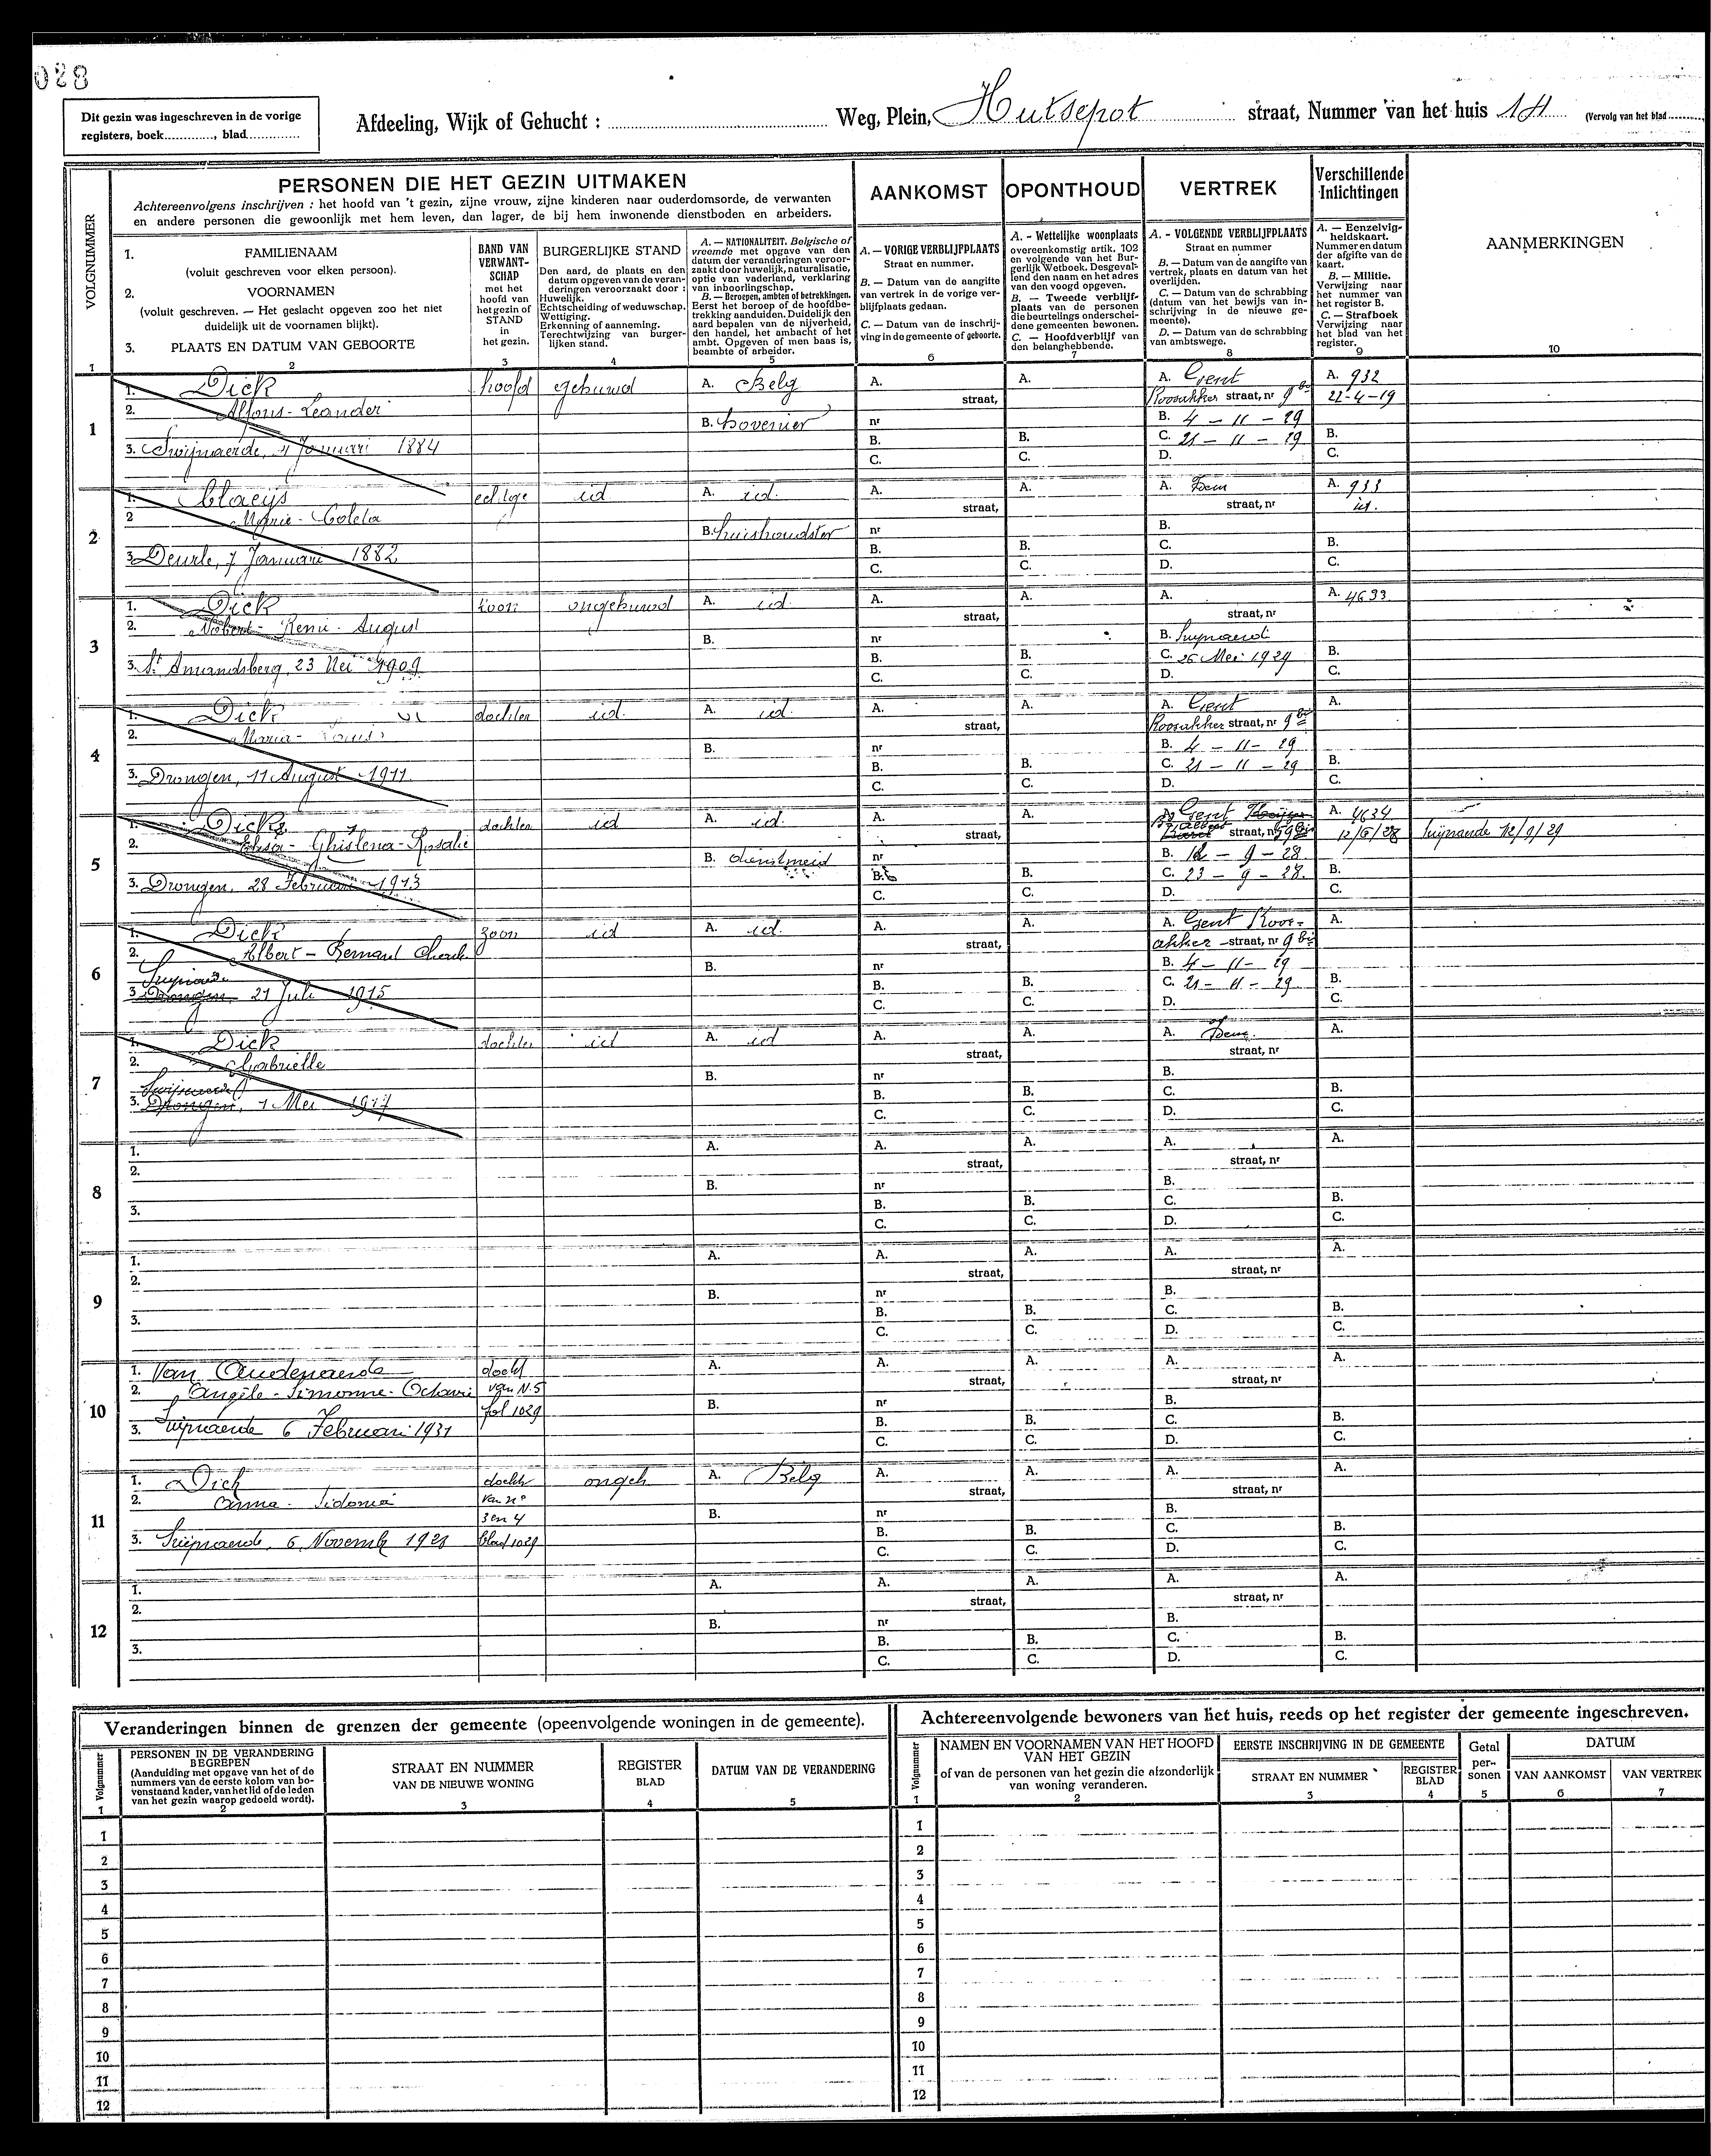 028
Dit gezin was ingeschreven in de vorige
registers, boek............, blad..............
Afdeeling, Wijk of Gehucht : ............ Weg, Plein, Hutsepot straat, Nummer van het huis 14 (Vervolg van het blad ..........
VOLGNUMMER
PERSONEN DIE HET GEZIN UITMAKEN
Achtereenvolgens inschrijven : het hoofd van 't gezin, zijne vrouw, zijne kinderen naar ouderdomsorde, de verwanten
en andere personen die gewoonlijk met hem leven, dan lager, de bij hem inwonende dienstboden en arbeiders.
AANKOMST
OPONTHOUD
VERTREK
Verschillende
Inlichtingen
1. FAMILIENAAM
(voluit geschreven voor elken persoon).
2. VOORNAMEN
(voluit geschreven. — Het geslacht opgeven zoo het niet
duidelijk uit de voornamen blijkt).
3. PLAATS EN DATUM VAN GEBOORTE
BAND VAN
VERWANT-
SCHAP
met het
hoofd van
het gezin of
STAND
in
het gezin.
BURGERLIJKE STAND
Den aard, de plaats en den
datum opgeven van de veran-
deringen veroorzaakt door :
Huwelijk.
Echtscheiding of weduwschap.
Wettiging.
Erkenning of aanneming.
Terechtwijzing van burger-
lijken stand.
A. — NATIONALITEIT. Belgische of
vreemde met opgave van den
datum der veranderingen veroor-
zaakt door huwelijk, naturalisatie,
optie van vaderland, verklaring
van inboorlingschap.
B. — Beroepen, ambten of betrekkingen.
Eerst het beroep of de hoofdbe-
trekking aanduiden. Duidelijk den
aard bepalen van de nijverheid,
den handel, het ambacht of het
ambt. Opgeven of men baas is,
beambte of arbeider.
A. — VORIGE VERBLIJFPLAATS
Straat en nummer.
B. — Datum van de aangifte
van vertrek in de vorige ver-
blijfplaats gedaan.
C. — Datum van de inschrij-
ving in de gemeente of geboorte.
A. - Wettelijke woonplaats
overeenkomstig artik. 102
en volgende van het Bur-
gerlijk Wetboek. Desgeval-
lend den naam en het adres
van den voogd opgeven.
B. — Tweede verblijf-
plaats van de personen
die beurtelings onderschei-
dene gemeenten bewonen.
C. — Hoofdverblijf van
den belanghebbende.
A. - VOLGENDE VERBLIJFPLAATS
Straat en nummer
B. — Datum van de aangifte van
vertrek, plaats en datum van het
overlijden.
C. — Datum van de schrabbing
(datum van het bewijs van in-
schrijving in de nieuwe ge-
meente).
D. — Datum van de schrabbing
van ambtswege.
A. — Eenzelvig-
heidskaart.
Nummer en datum
der afgifte van de
kaart.
B. — Militie.
Verwijzing naar
het nummer van
het register B.
C. — Strafboek
Verwijzing naar
het blad van het
register.
AANMERKINGEN
1 2 3 4 5 6 7 8 9 10
1
1. Dick hoofd gehuwd A. Belg A. A. A. Gent A. 932
2. Alfons-Leander straat, Roosakker straat, nr 9 bis 22-4-19
B. hovenier nr B. 4 - 11 - 29
3. Swijnaerde, 4 Januari 1884 B. B. C. 21 - 11 - 29 B.
C. C. D. C.
2
1. Claeys echtge id A. id. A. A. A. Idem A. 933
2 Marie-Coleta straat, straat, nr id.
B. huishoudster nr B.
3. Deurle, 7 Januari 1882 B. B. C. B.
C. C. D. C.
3
1. Dick zoon ongehuwd A. id. A. A. A. A. 4633
2. Nobert-Remi-August straat, straat, nr
B. nr B.
3. St Amandsberg, 23 Mei 1909 B. B. C. 26 Mei 1929 B.
C. C. D. C.
4
1. Dick dochter id. A. id. A. A. A. Gent A.
2. Maria- straat, Roosakker straat, nr 9 bis
B. nr B. 4 - 11 - 29
3. Drongen, 11 August 1911 B. B. C. 21 - 11 - 29 B.
C. C. D. C.
5
1. Dick dochter id A. id. A. A. Gent A. 4634
2. Elisa-Ghislena-Rosalie straat, straat, nr 12/9/28
B. dienstmeid nr B. 12 - 9 - 28
3. Drongen, 28 Februari 1913 B. B. C. 23 - 9 - 28. B.
C. C. D. C.
12/9/29
6
1. Dick zoon id A. id. A. A. A. Gent Roos- A.
2. Albert - Bernard straat, akker straat, nr 9 bis
B. nr B. 4 - 11 - 29
3 Drongen 21 Juli 1915 B. B. C. 21 - 11 - 29 B.
C. C. D. C.
7
1. Dick dochter id A. id A. A. A. Idem. A.
2. Gabrielle straat, straat, nr
B. nr B.
Swijnaerde
3. Drongen, 1 Mei 1917 B. B. C. B.
C. C. D. C.
8
1. A. A. A. A. A.
2. straat, straat, nr
B. nr B.
3. B. B. C. B.
C. C. D. C.
9
1. A. A. A. A. A.
2. straat, straat, nr
B. nr B.
3. B. B. C. B.
C. C. D. C.
10
1. Van Audenaerde docht A. A. A. A. A.
2. Angèle-Simonne-Octavie van N.5 straat, straat, nr
fol 1029 B. nr B.
3. Swijnaerde 6 Februari 1931 B. B. C. B.
C. C. D. C.
11
1. Dick docht ongeh A. Belg A. A. A. A.
2. Anna-Sidonia van n° straat, straat, nr
3 en 4 B. nr B.
3. Swijnaerde, 6 Novemb 1921 blad 1029 B. B. C. B.
C. C. D. C.
12
1. A. A. A. A. A.
2. straat, straat, nr
B. nr B.
3. B. B. C. B.
C. C. D. C.
Veranderingen binnen de grenzen der gemeente (opeenvolgende woningen in de gemeente).
Volgnummer
PERSONEN IN DE VERANDERING
BEGREPEN
(Aanduiding met opgave van het of de
nummers van de eerste kolom van bo-
venstaand kader, van het lid of de leden
van het gezin waarop gedoeld wordt).
STRAAT EN NUMMER
VAN DE NIEUWE WONING
REGISTER
BLAD
DATUM VAN DE VERANDERING
1 2 3 4 5
1
2
3
4
5
6
7
8
9
10
11
12
Achtereenvolgende bewoners van het huis, reeds op het register der gemeente ingeschreven.
Volgnummer
NAMEN EN VOORNAMEN VAN HET HOOFD
VAN HET GEZIN
of van de personen van het gezin die afzonderlijk
van woning veranderen.
EERSTE INSCHRIJVING IN DE GEMEENTE
STRAAT EN NUMMER
REGISTER
BLAD
Getal
per-
sonen
DATUM
VAN AANKOMST
VAN VERTREK
1 2 3 4 5 6 7
1
2
3
4
5
6
7
8
9
10
11
12